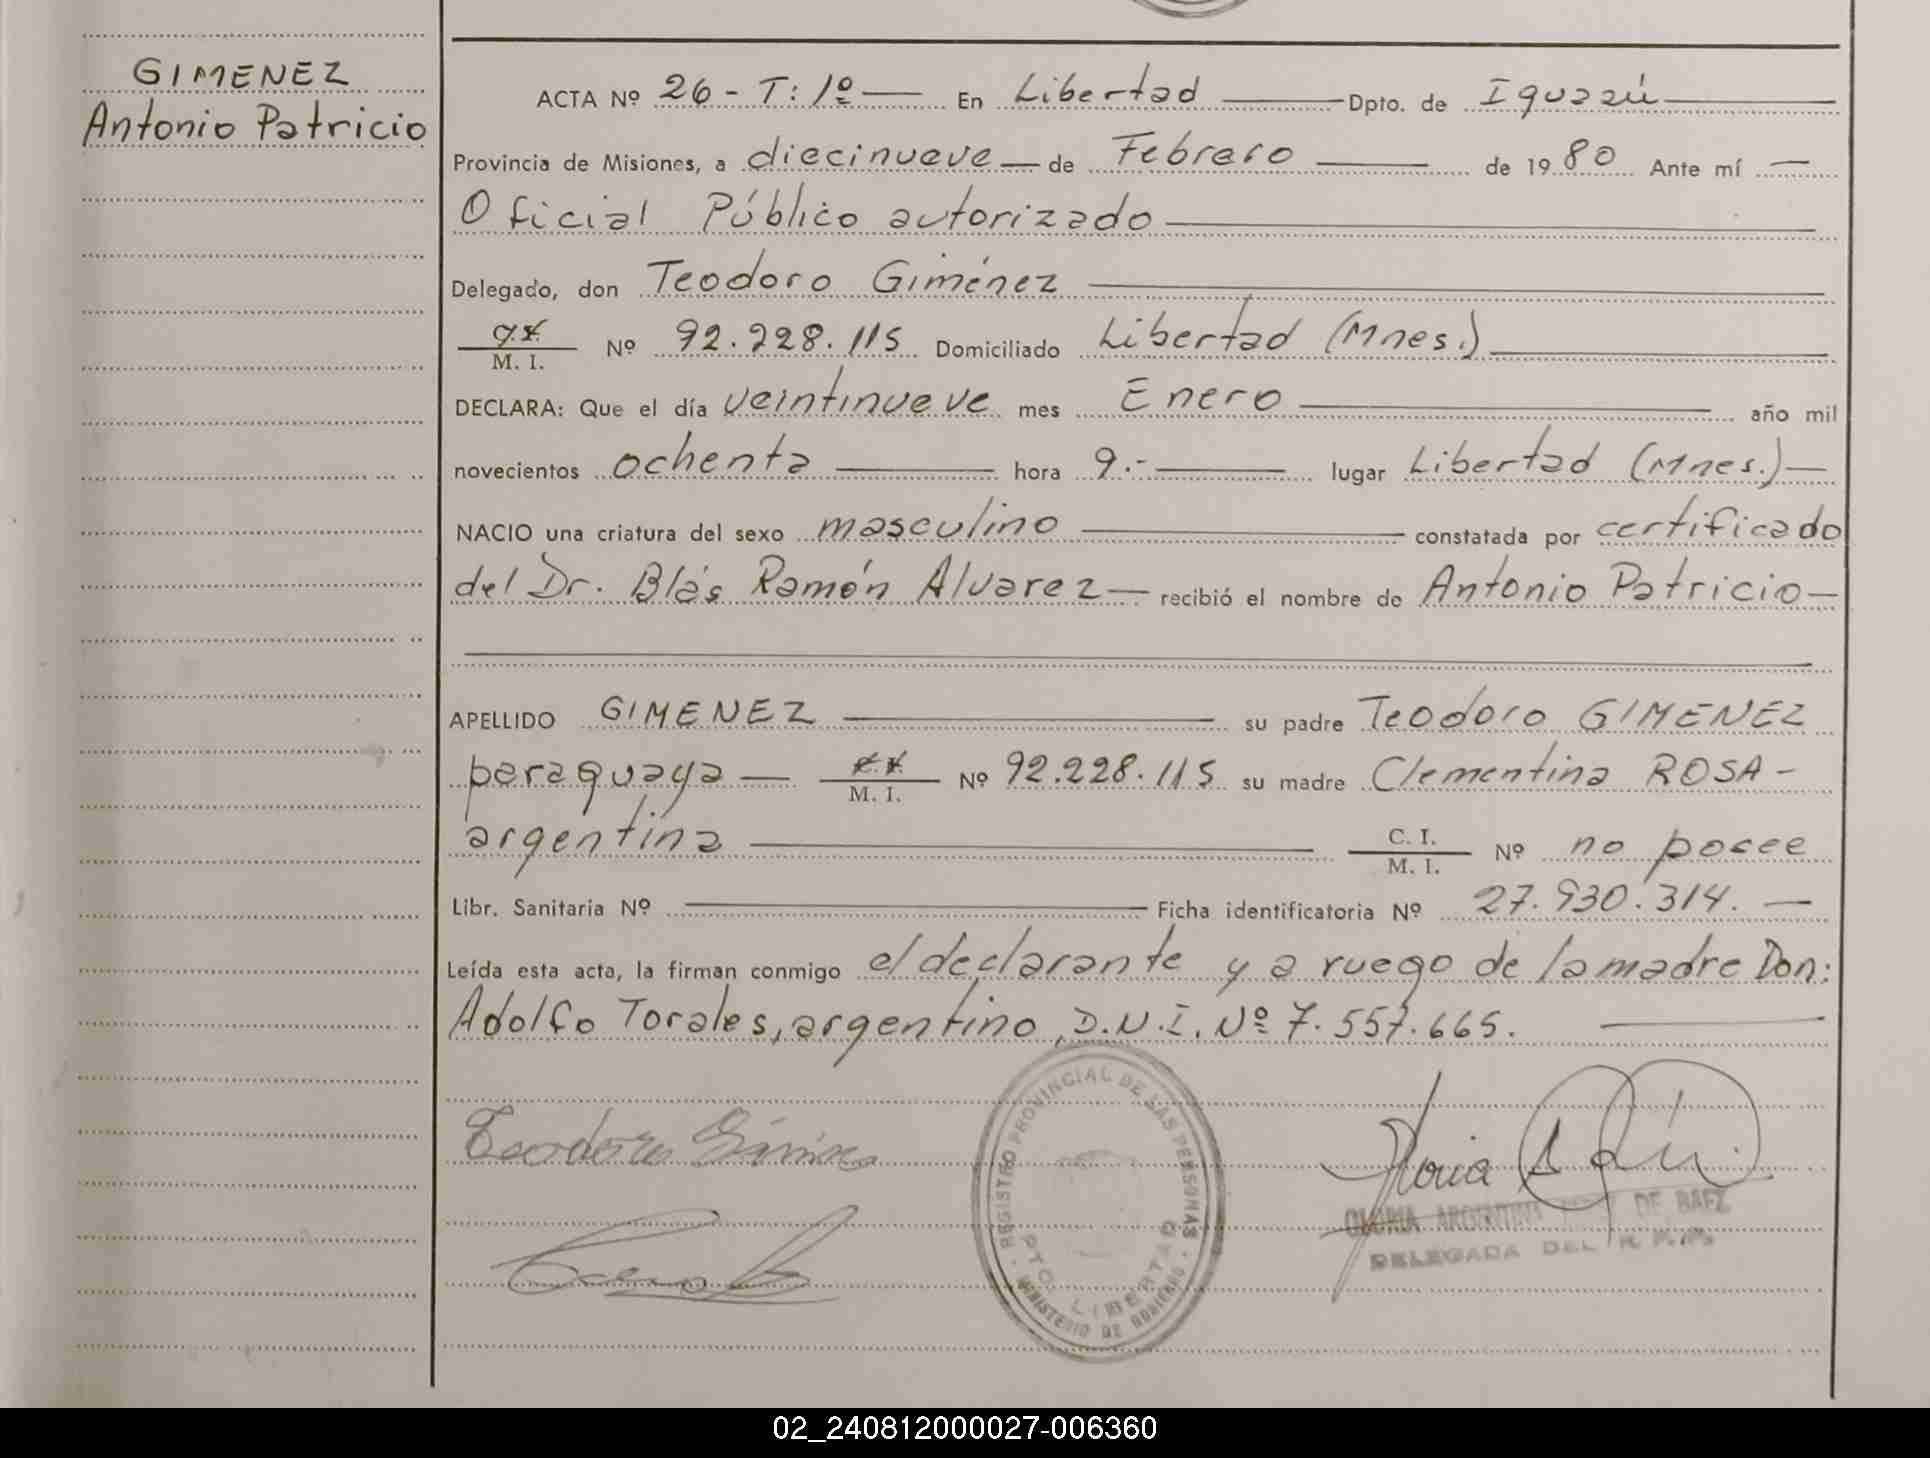 GIMENEZ
Antonio Patricio
ACTA Nº 26 - T: 1º — En Libertad — Dpto. de Iguazú —
Provincia de Misiones, a diecinueve — de Febrero — de 1980 Ante mí —
Oficial Público autorizado —
Delegado, don Teodoro Giménez —
M. I. Nº 92.228.115 Domiciliado Libertad (Mnes.) —
DECLARA: Que el día veintinueve mes Enero — año mil
novecientos ochenta — hora 9.- — lugar Libertad (Mnes.) —
NACIO una criatura del sexo masculino — constatada por certificado
del Dr. Blás Ramón Alvarez — recibió el nombre de Antonio Patricio —
APELLIDO GIMENEZ — su padre Teodoro GIMENEZ
paraguaya — M. I. Nº 92.228.115 su madre Clementina ROSA -
argentina — C. I. M. I. Nº no posee
Libr. Sanitaria Nº — Ficha identificatoria Nº 27.930.314. —
Leída esta acta, la firman conmigo el declarante y a ruego de la madre Don:
Adolfo Torales, argentino, D.N.I. Nº 7.557.665. —
Teodoro Giménez
REGISTRO PROVINCIAL DE LAS PERSONAS
PTO LIBERTAD
MINISTERIO DE GOBIERNO
GLORIA ARGENTINA DE BAEZ
DELEGADA DEL R.
02_240812000027-006360